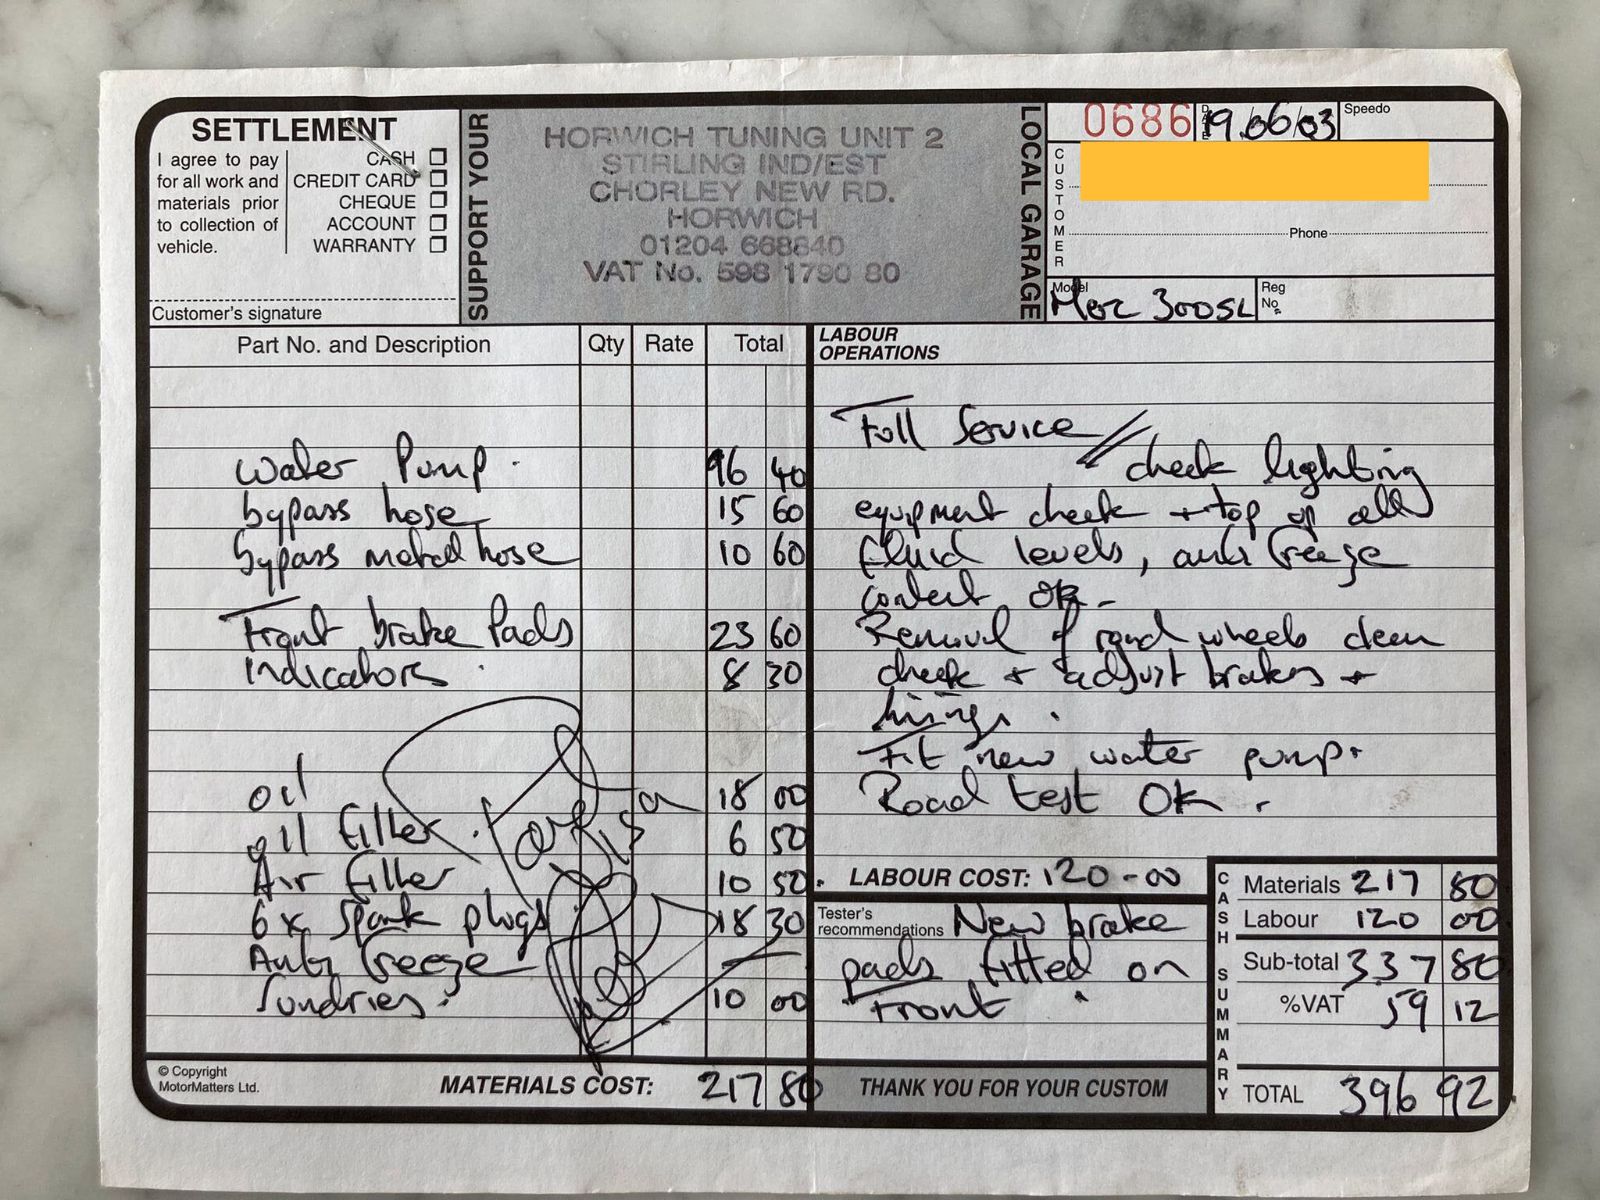 SETTLEMENT
I agree to pay for all work and materials prior to collection of vehicle.
CASH
CREDIT CARD
CHEQUE
ACCOUNT
WARRANTY
Customer's signature
SUPPORT YOUR
HORWICH TUNING UNIT 2
STIRLING IND/EST
CHORLEY NEW RD.
HORWICH
01204 668840
VAT No. 598 1790 80
LOCAL GARAGE
0686
19.06/03
Speedo
CUSTOMER
Phone
Model
Merc 300SL
Reg No.
Part No. and Description Qty Rate Total
Water Pump. 96 40
bypass hose 15 60
bypass metal hose 10 60
Front brake Pads 23 60
Indicators. 8 30
oil 18 00
oil filter. 6 50
Air filter 10 50
6 x Spark plugs. 18 30
Anti freeze —
Sundries. 10 00
© Copyright
MotorMatters Ltd.
MATERIALS COST: 217 80
LABOUR OPERATIONS
Full Service //
check lighting
equipment check + top up all
fluid levels, anti freeze
content OK-
Removal of road wheels clean
check + adjust brakes +
linings.
Fit new water pump.
Road test OK.
LABOUR COST: 120-00
Tester's recommendations New brake
pads fitted on
Front.
THANK YOU FOR YOUR CUSTOM
CASH SUMMARY
Materials 217 80
Labour 120 00
Sub-total 337 80
%VAT 59 12
TOTAL 396 92